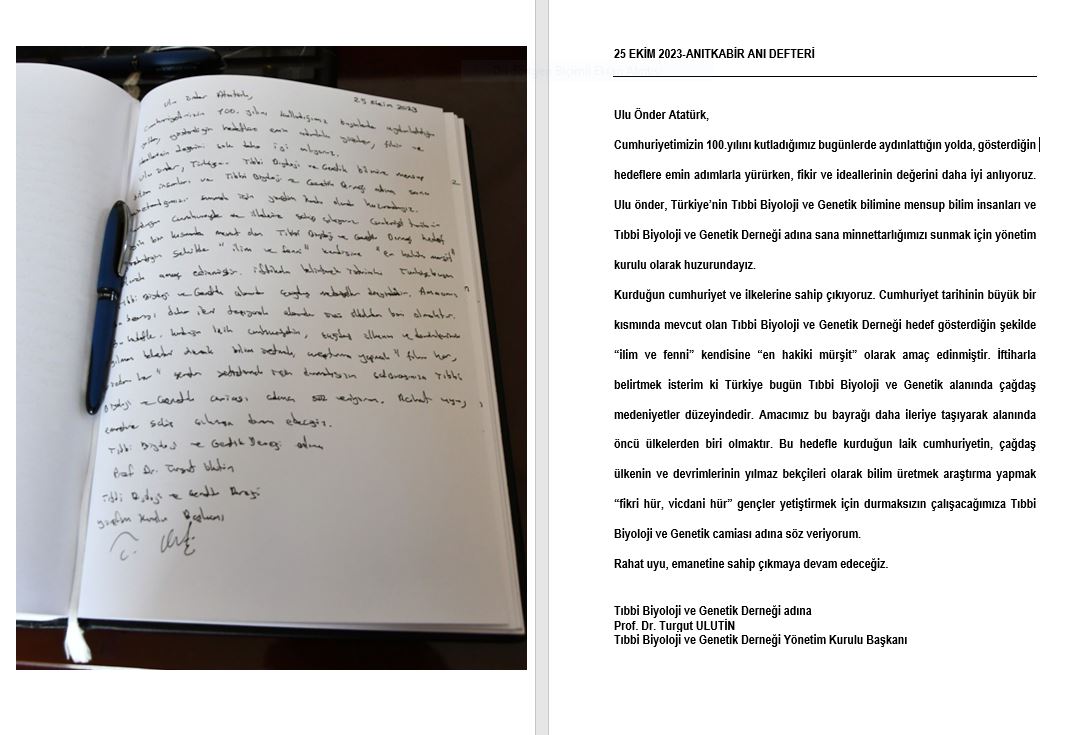 Ulu Önder Atatürk,
25 Ekim 2023
Cumhuriyetimizin 100. yılını kutladığımız bugünlerde aydınlattığın
yolda, gösterdiğin hedeflere emin adımlarla yürürken, fikir ve
ideallerinin değerini daha iyi anlıyoruz.
Ulu önder, Türkiye'nin Tıbbi Biyoloji ve Genetik bilimine mensup
bilim insanları ve Tıbbi Biyoloji ve Genetik Derneği adına sana
minnettarlığımızı sunmak için yönetim kurulu olarak huzurundayız.
Kurduğun cumhuriyete ve ilkelerine sahip çıkıyoruz. Cumhuriyet tarihinin
bir kısmında mevcut olan Tıbbi Biyoloji ve Genetik Derneği hedef
gösterdiğin şekilde "ilim ve fenni" kendisine "en hakiki mürşit"
olarak amaç edinmiştir. İftiharla belirtmek isterim ki Türkiye bugün
Tıbbi Biyoloji ve Genetik alanında çağdaş medeniyetler düzeyindedir. Amacımız
bu bayrağı daha ileri taşıyarak alanında öncü ülkelerden biri olmaktır.
Bu hedefle kurduğun laik cumhuriyetin, çağdaş ülkenin ve devrimlerinin
yılmaz bekçileri olarak bilim üretmek, araştırma yapmak "fikri hür,
vicdanı hür" gençler yetiştirmek için durmaksızın çalışacağımıza Tıbbi
Biyoloji ve Genetik camiası adına söz veriyorum. Rahat uyu,
emanetine sahip çıkmaya devam edeceğiz.
Tıbbi Biyoloji ve Genetik Derneği adına
Prof. Dr. Turgut Ulutin
Tıbbi Biyoloji ve Genetik Derneği
Yönetim Kurulu Başkanı
25 EKİM 2023-ANITKABİR ANI DEFTERİ
Ulu Önder Atatürk,
Cumhuriyetimizin 100.yılını kutladığımız bugünlerde aydınlattığın yolda, gösterdiğin
hedeflere emin adımlarla yürürken, fikir ve ideallerinin değerini daha iyi anlıyoruz.
Ulu önder, Türkiye’nin Tıbbi Biyoloji ve Genetik bilimine mensup bilim insanları ve
Tıbbi Biyoloji ve Genetik Derneği adına sana minnettarlığımızı sunmak için yönetim
kurulu olarak huzurundayız.
Kurduğun cumhuriyet ve ilkelerine sahip çıkıyoruz. Cumhuriyet tarihinin büyük bir
kısmında mevcut olan Tıbbi Biyoloji ve Genetik Derneği hedef gösterdiğin şekilde
“ilim ve fenni” kendisine “en hakiki mürşit” olarak amaç edinmiştir. İftiharla
belirtmek isterim ki Türkiye bugün Tıbbi Biyoloji ve Genetik alanında çağdaş
medeniyetler düzeyindedir. Amacımız bu bayrağı daha ileriye taşıyarak alanında
öncü ülkelerden biri olmaktır. Bu hedefle kurduğun laik cumhuriyetin, çağdaş
ülkenin ve devrimlerinin yılmaz bekçileri olarak bilim üretmek araştırma yapmak
“fikri hür, vicdani hür” gençler yetiştirmek için durmaksızın çalışacağımıza Tıbbi
Biyoloji ve Genetik camiası adına söz veriyorum.
Rahat uyu, emanetine sahip çıkmaya devam edeceğiz.
Tıbbi Biyoloji ve Genetik Derneği adına
Prof. Dr. Turgut ULUTİN
Tıbbi Biyoloji ve Genetik Derneği Yönetim Kurulu Başkanı